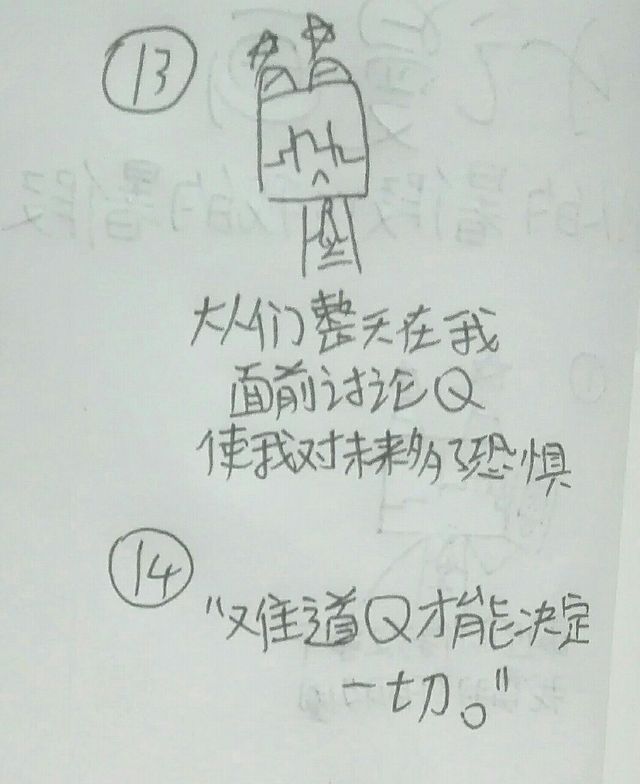 13
大人们整天在我
面前讨论Q
使我对未来多了恐惧
14
"难道Q才能决定
一切。"